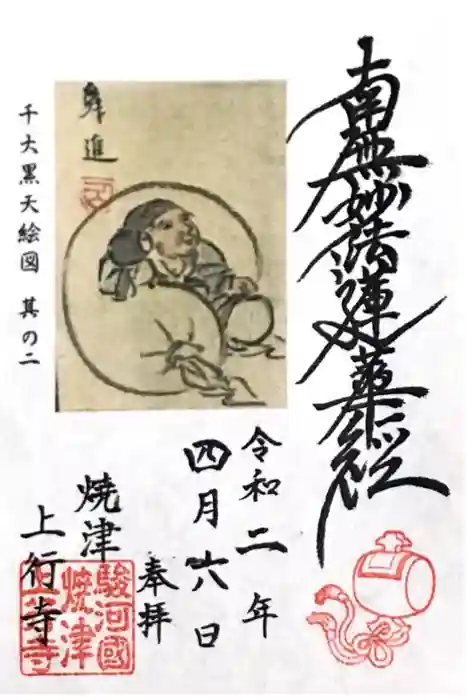 南無妙法蓮華経
令和二年
四月六日
奉拝
焼津
上行寺
駿河國
焼津
上行寺
千大黒天絵図 其の二